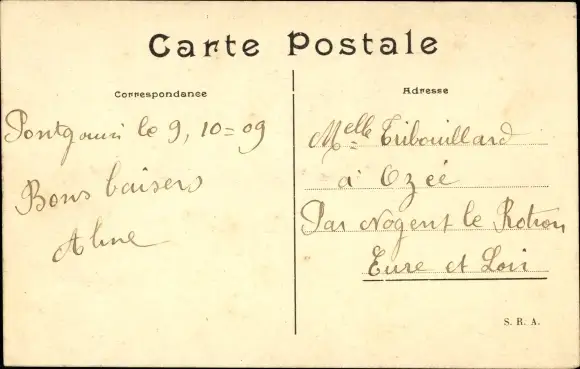 Carte Postale
Correspondance
Pontgouin le 9, 10=09
Bons baisers
Aline
Adresse
Melle Tribouillard
à Ozée
Par Nogent le Rotrou
Eure et Loir
S. R. A.